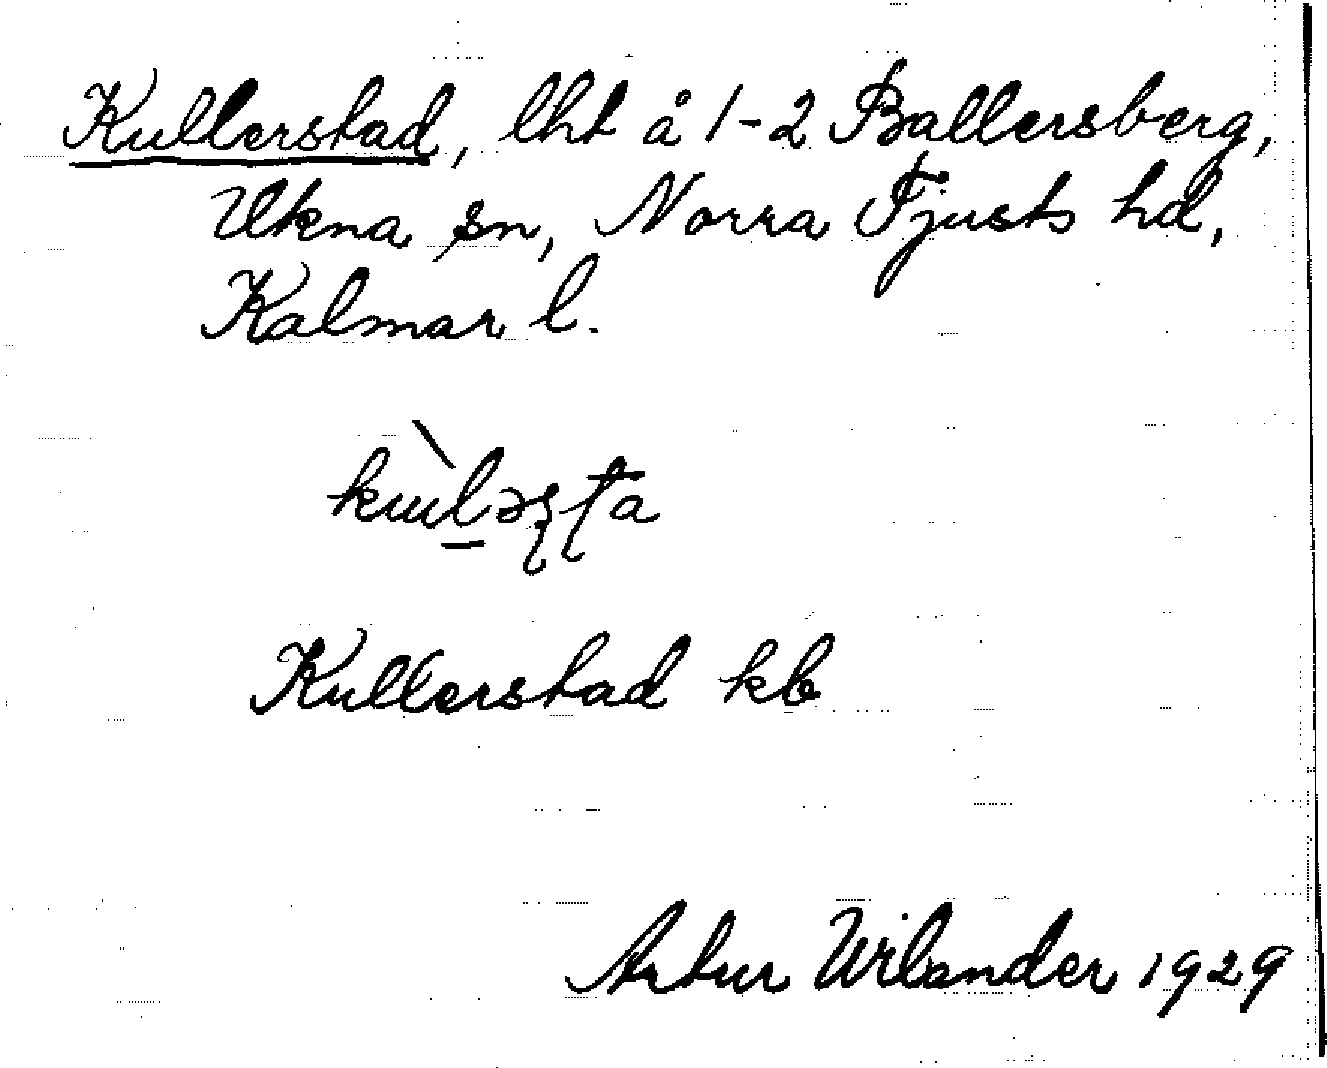 Kullerstad, lht å 1-2 Ballersberg,
Ukna sn, Norra Tjusts hd,
Kalmar l.
Kullerstad kb
Artur Wilander 1929